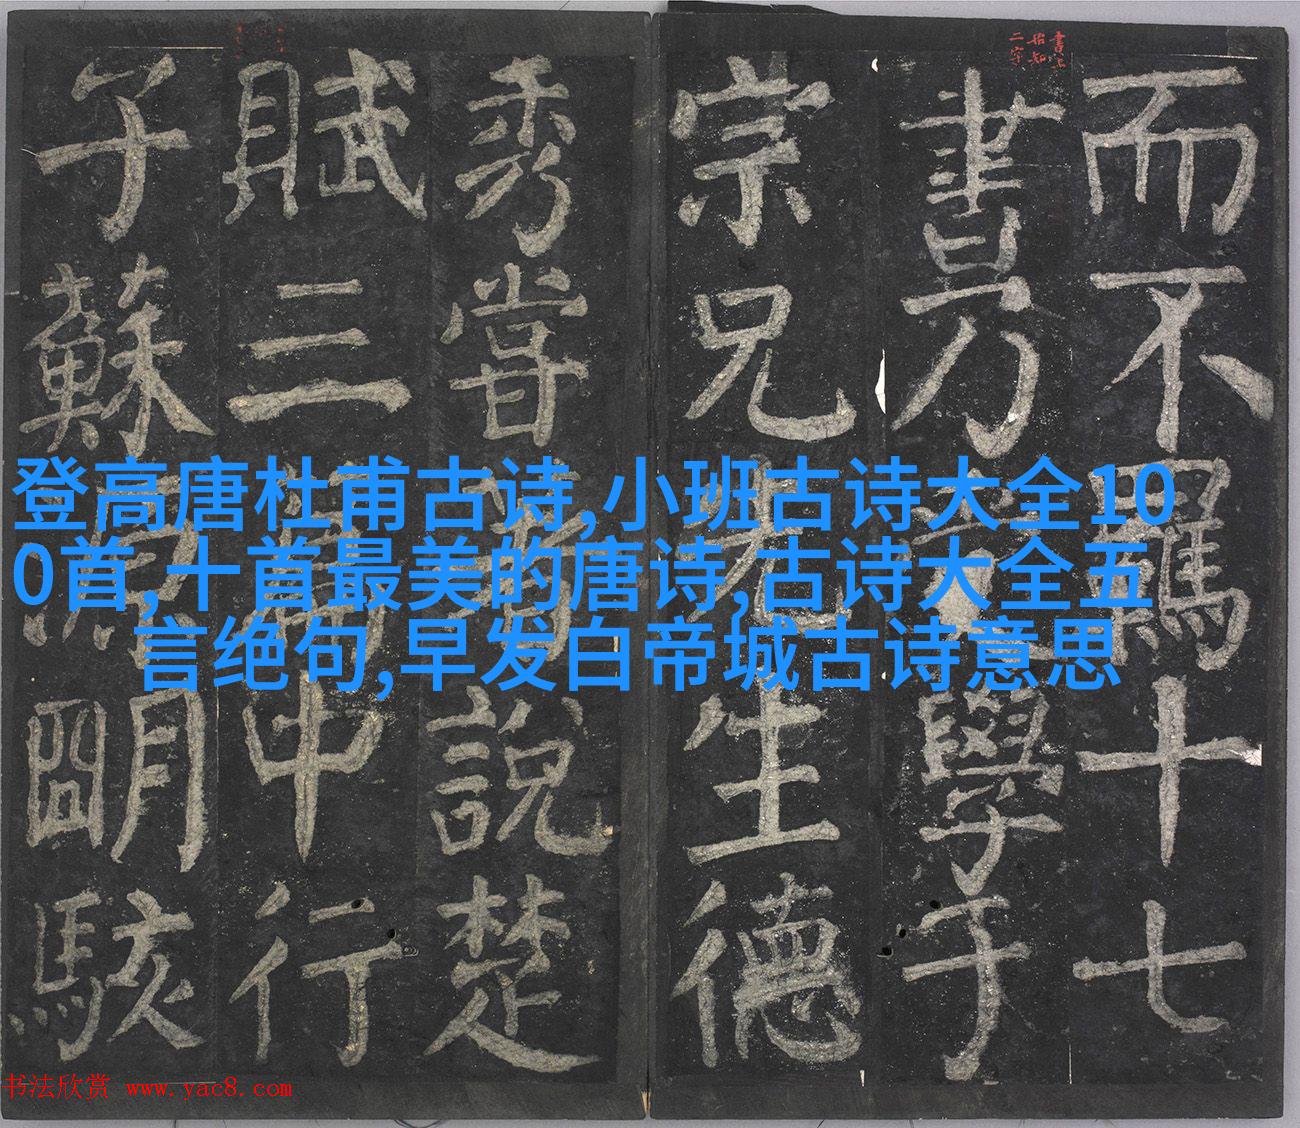 登高唐杜甫古诗,小班古诗大全10
0首,十首最美的唐诗,古诗大全五
言绝句,早发白帝城古诗意思
而不羅十七
書乃學于
宗兄先生德
秀嘗爲說楚
賦三中行
子蘇源明駭
书法欣赏 www.yac8.com